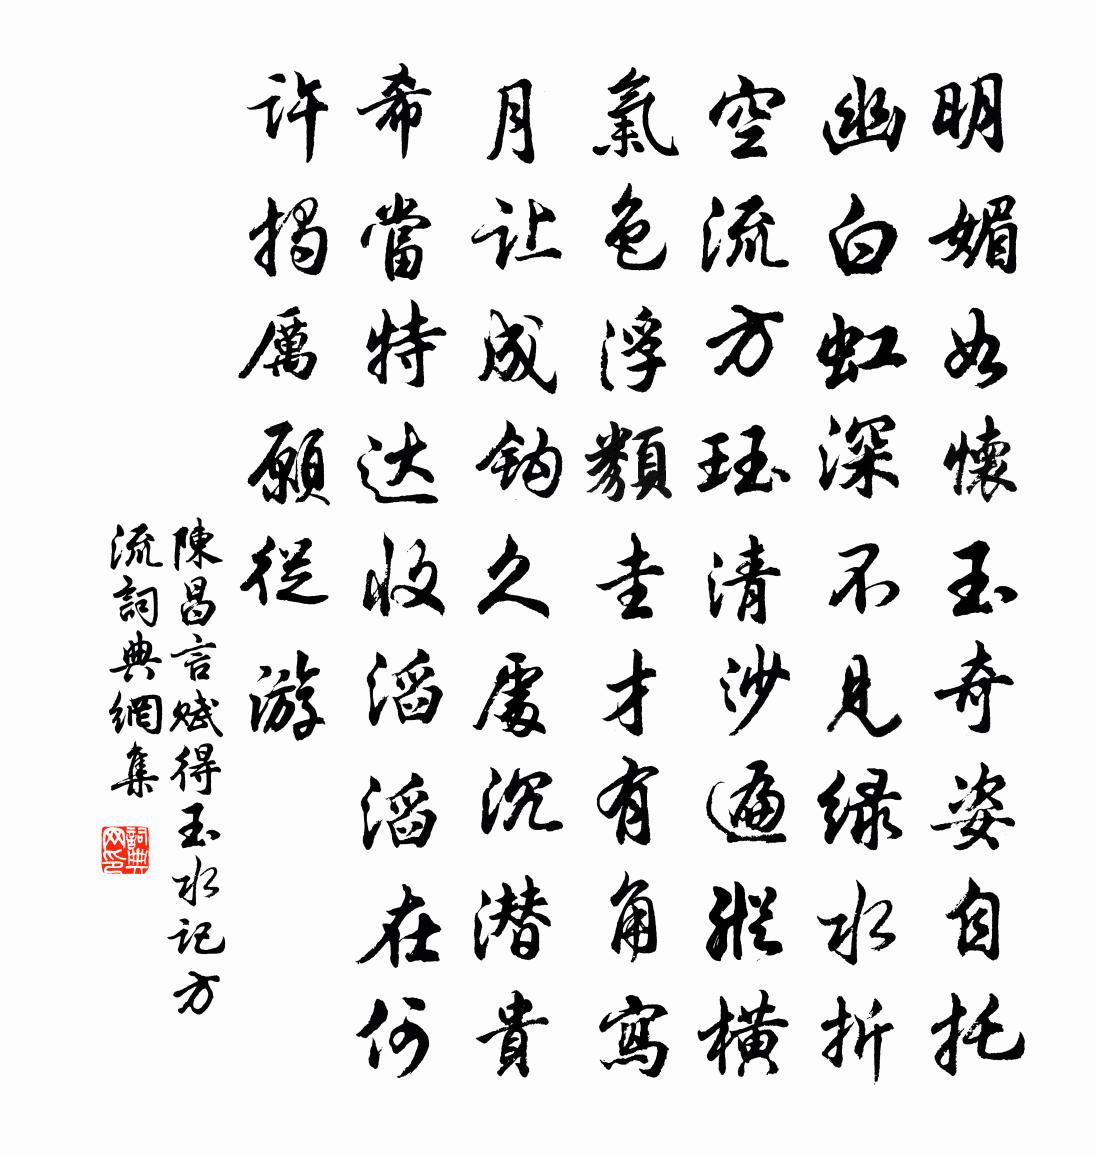 明媚如懷玉奇姿自托
幽白虹深不見绿水折
空流方珏清沙遍縱橫
氣色浮纇圭才有角寫
月让成鈎久處沉潜貴
希當特达收滔滔在何
许揭厲願從游
陳昌言赋得玉水记方
流詞典網集
詞典网印